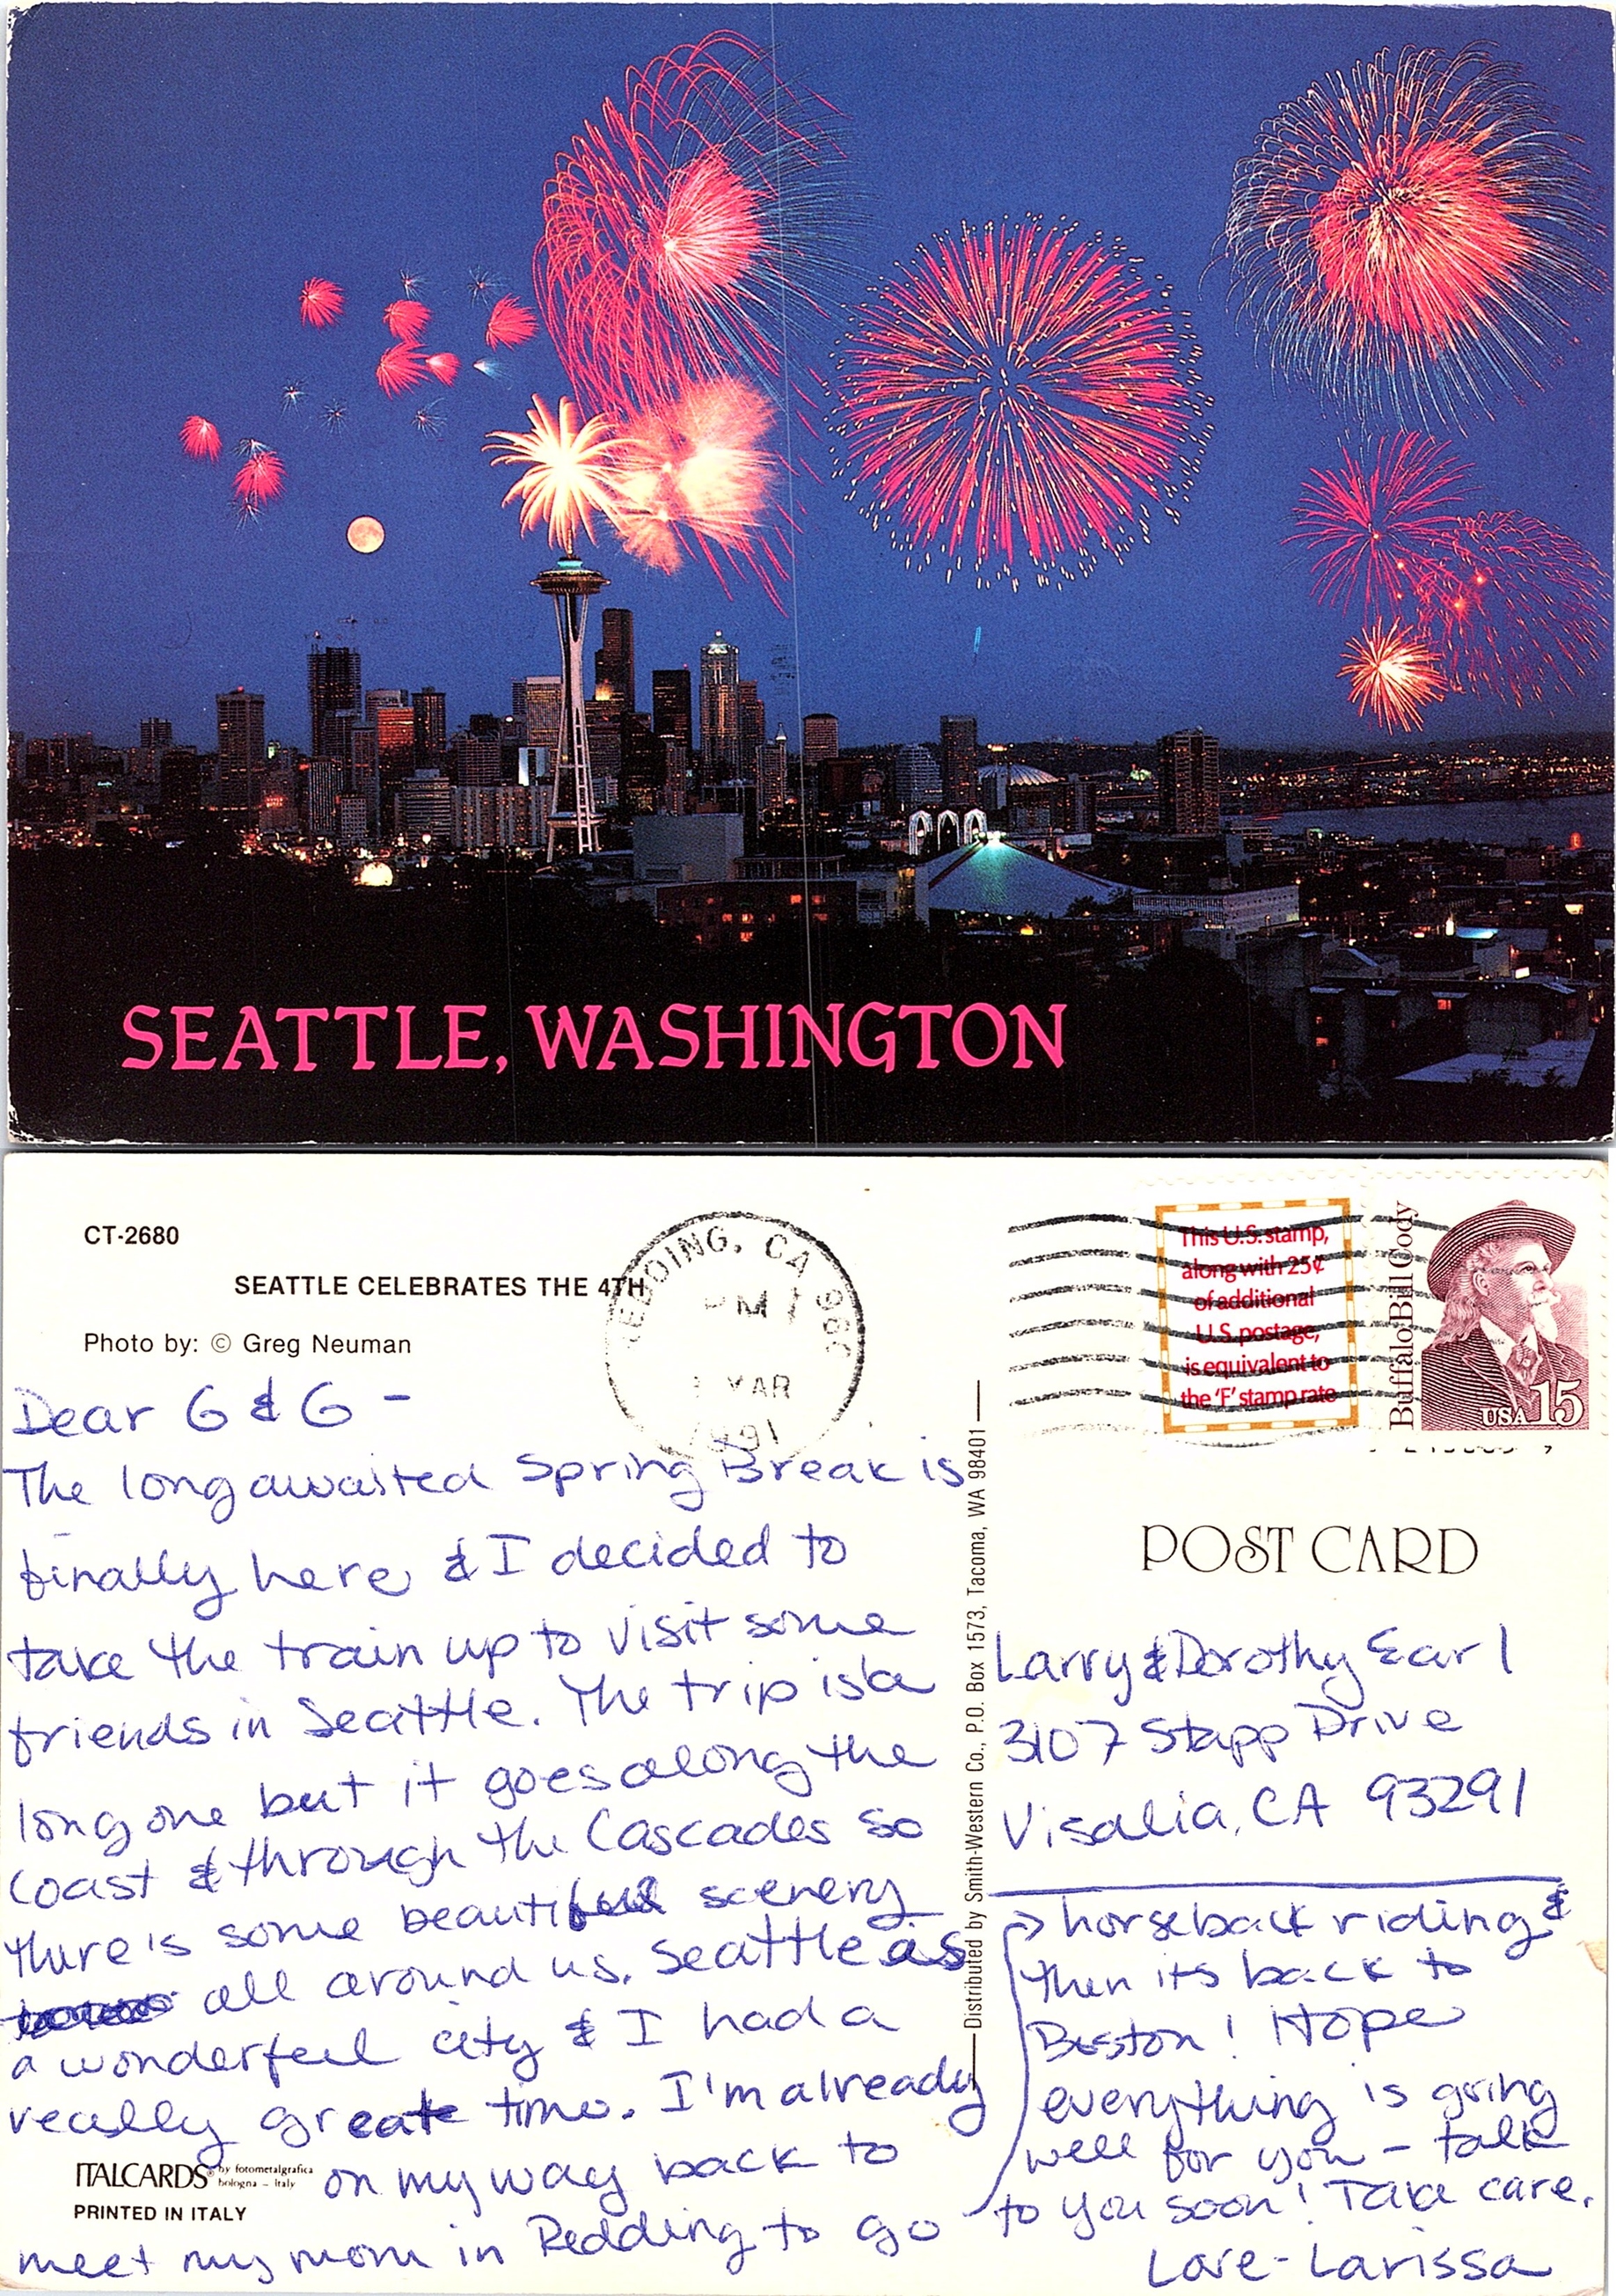 SEATTLE, WASHINGTON
CT-2680
SEATTLE CELEBRATES THE 4TH
Photo by: © Greg Neuman
REDDING, CA 960
PM
MAR
1991
This U.S. stamp,
along with 25¢
of additional
U.S. postage,
is equivalent to
the 'F' stamp rate
Buffalo Bill Cody
USA 15
Dear G & G -
The long awaited Spring Break is
finally here & I decided to
take the train up to visit some
friends in Seattle. The trip is a
long one but it goes along the
coast & through the Cascades so
there's some beautiful scenery
all around us. Seattle is
a wonderful city & I had a
really great time. I'm already
on my way back to
meet my mom in Redding to go
ITALCARDS® by fotometalgrafica
bologna - italy
PRINTED IN ITALY
Distributed by Smith-Western Co., P.O. Box 1573, Tacoma, WA 98401
POST CARD
Larry & Dorothy Earl
3107 Stapp Drive
Visalia, CA 93291
horseback riding &
then its back to
Boston! Hope
everything is going
well for you - talk
to you soon! Take care.
Love - Larissa